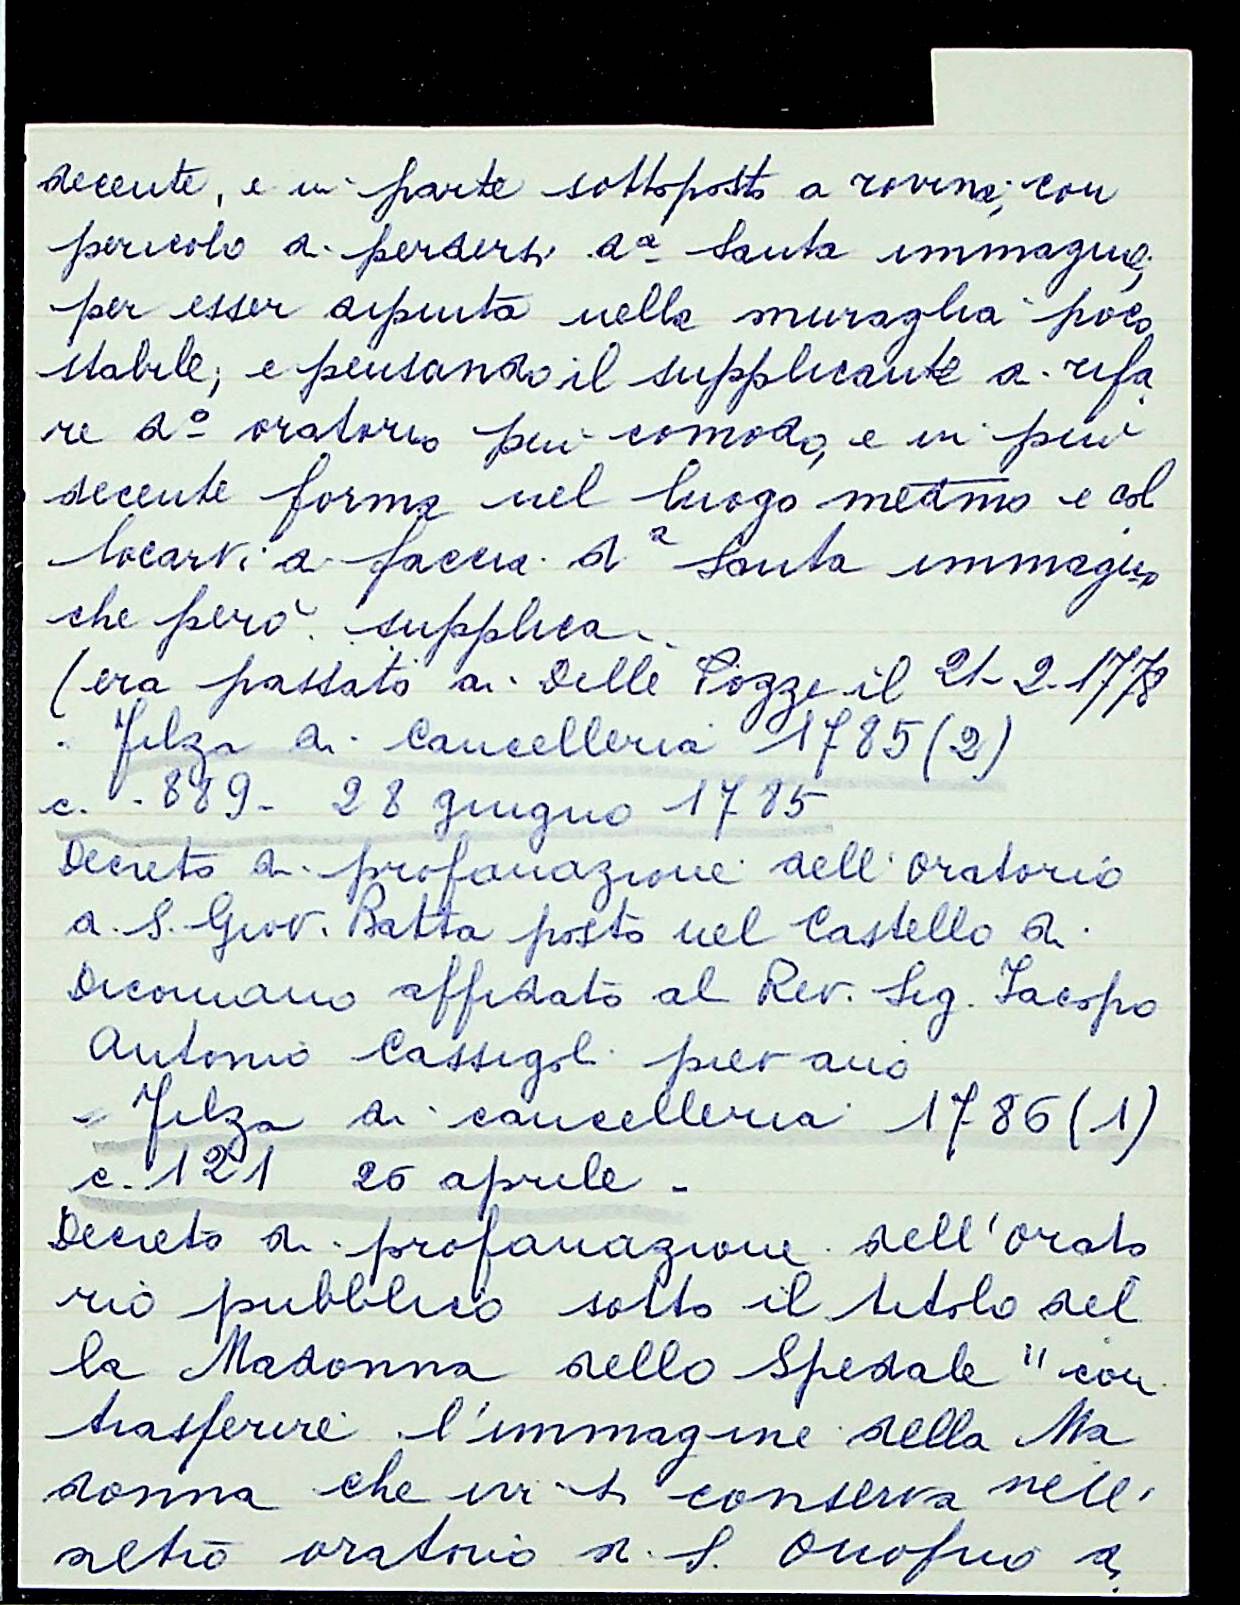 decente, e in parte sottoposto a rovina; con
pericolo di perdersi dª Santa immagine,
per esser dipinta nella muraglia poco
stabile; e pensando il supplicante di rifa
re dº oratorio più comodo, e in più
decente forma nel luogo medmo e col
locarvi a faccia dª Santa immagine
che però supplica..
(era passato ai Delle Pozze il 21-2-1778
- Filza di Cancelleria 1785(2)
c. - 889 - 28 giugno 1785
Decreto di profanazione dell'oratorio
di S. Giov. Batta posto nel Castello di
Dicomano affidato al Rev. Sig. Jacopo
Antonio Cassigoli pievano
- Filza di cancelleria 1786(1)
c. 121 26 aprile -
Decreto di profanazione dell'Orato
rio pubblico sotto il titolo del
la Madonna dello Spedale "con
trasferire l'immagine della Ma
donna che ivi si conserva nell'
altro oratorio di S. Onofrio di